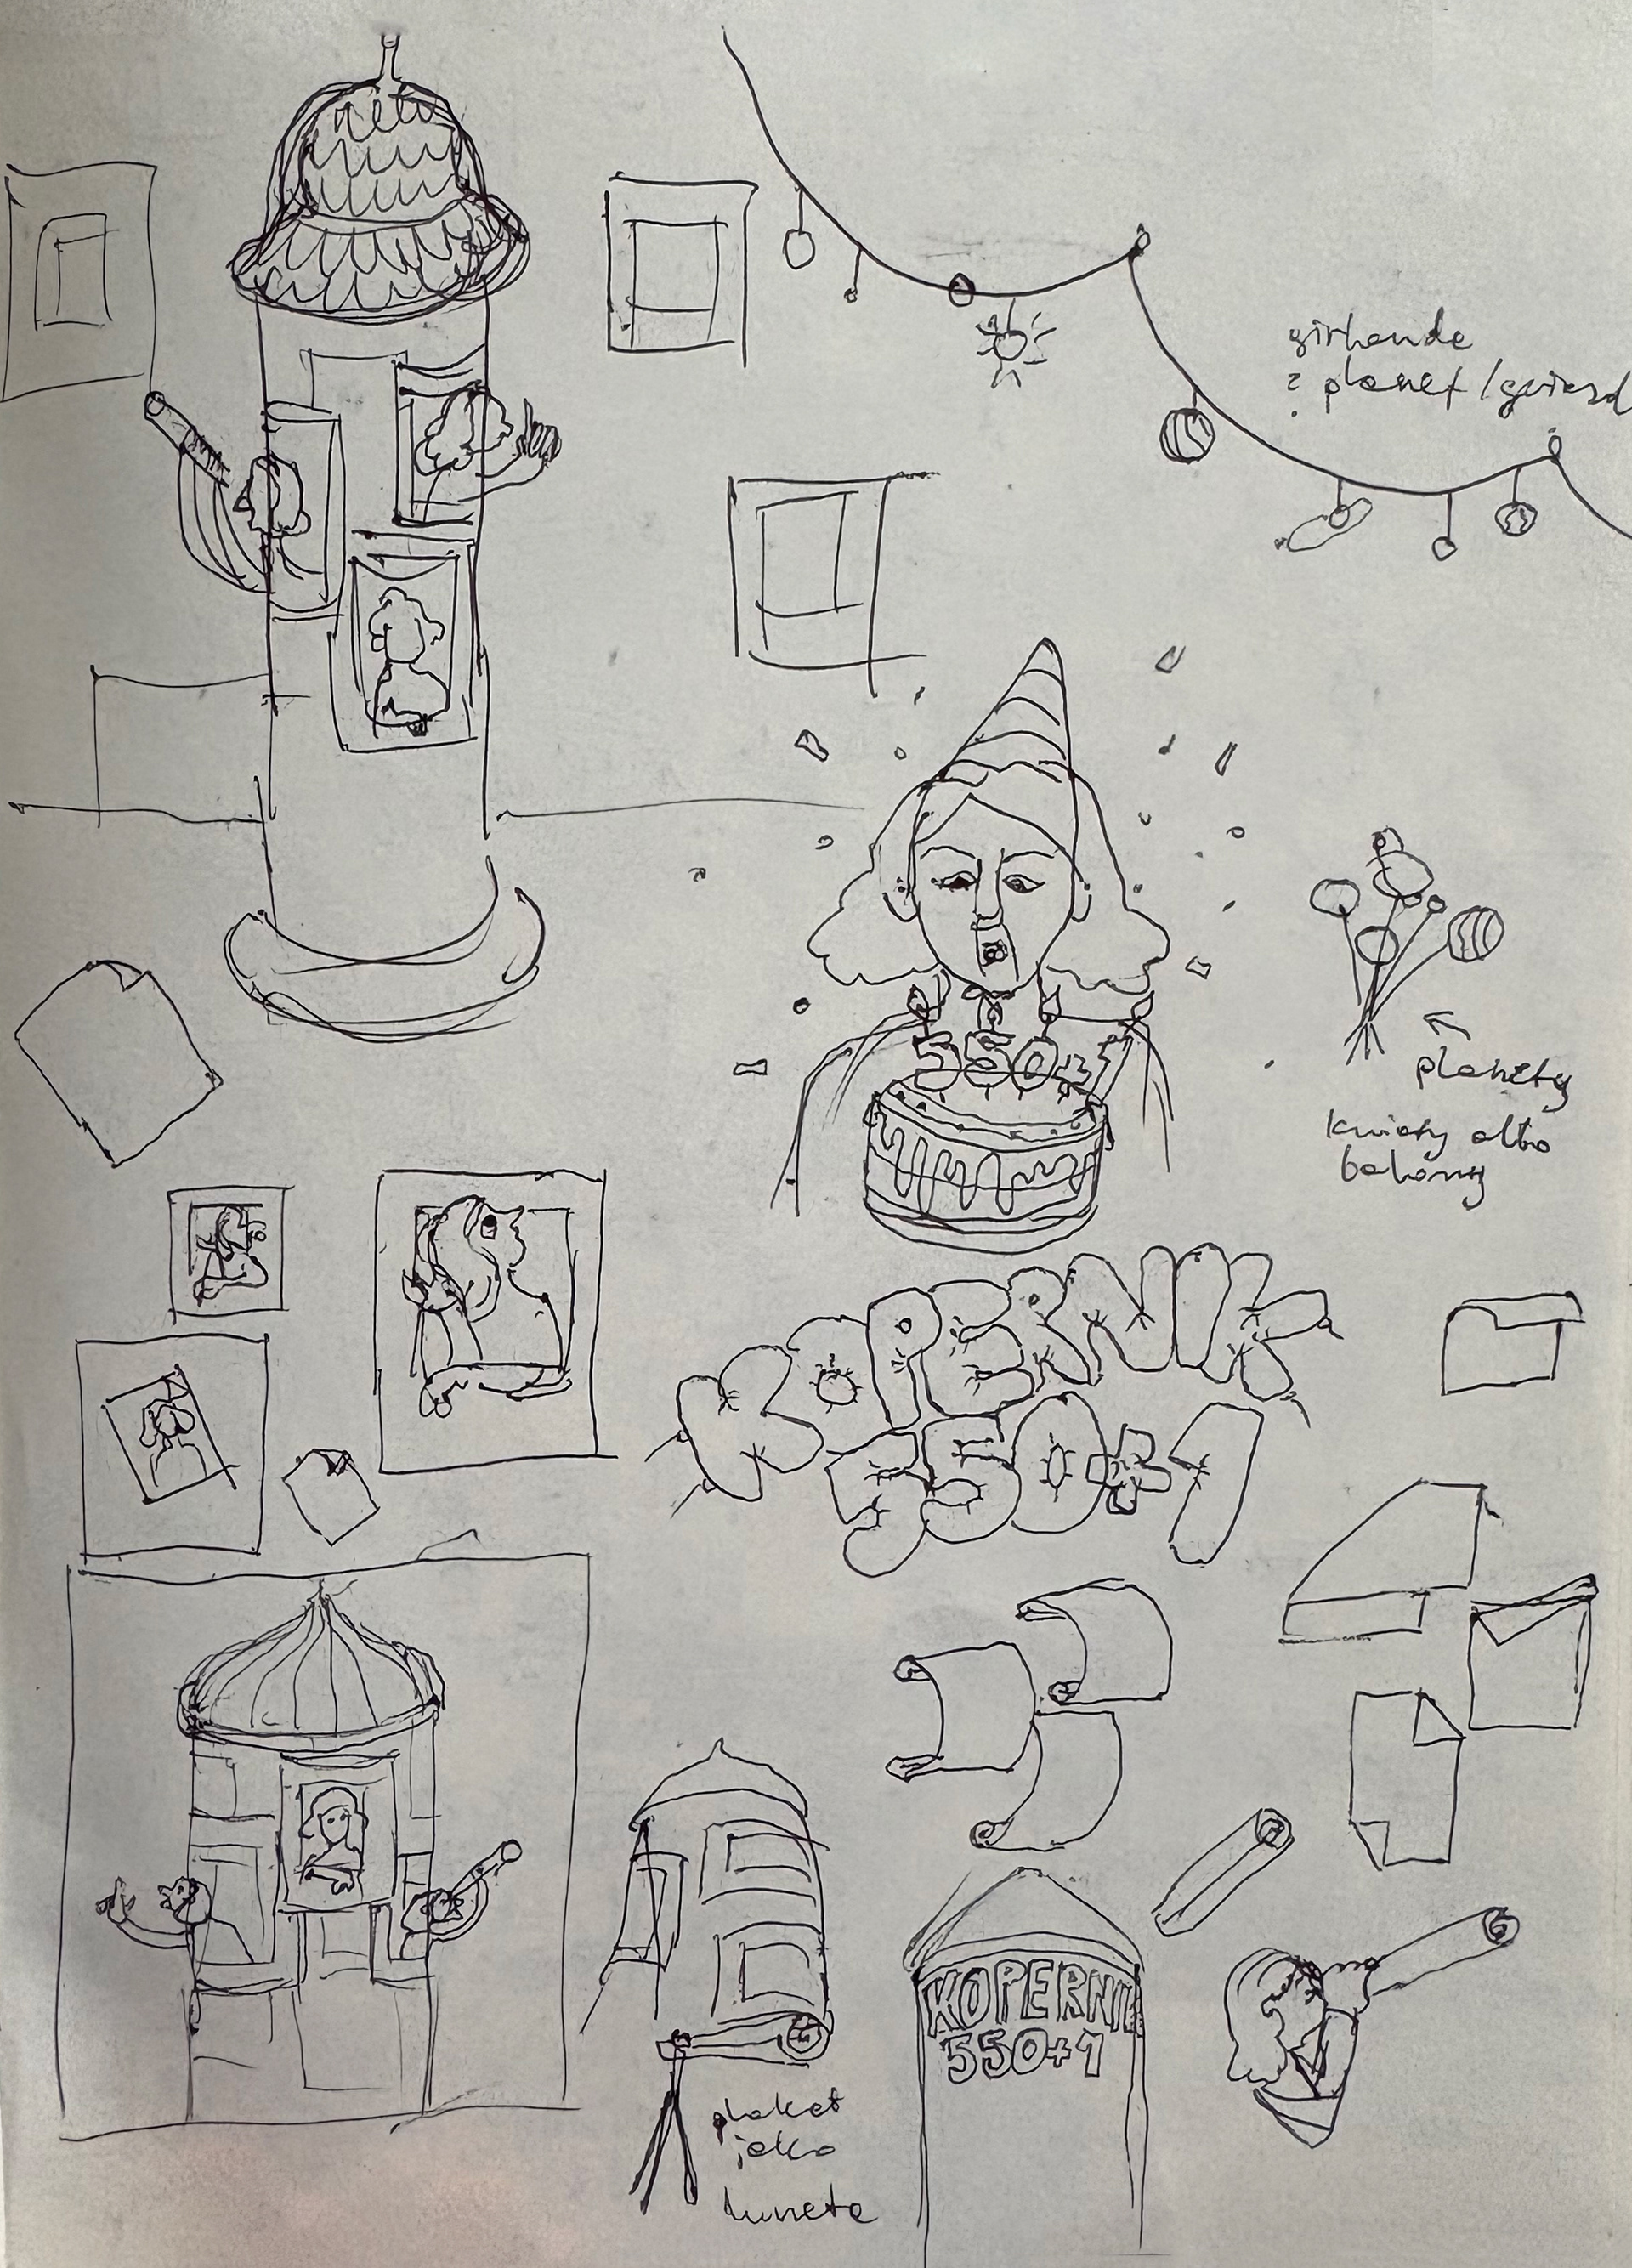 girlanda
z planet / gwiazd
550+1
planety
kwiaty albo
balony
KOPERNIK
550+1
KOPERNIK
550+1
plakat
jako
luneta